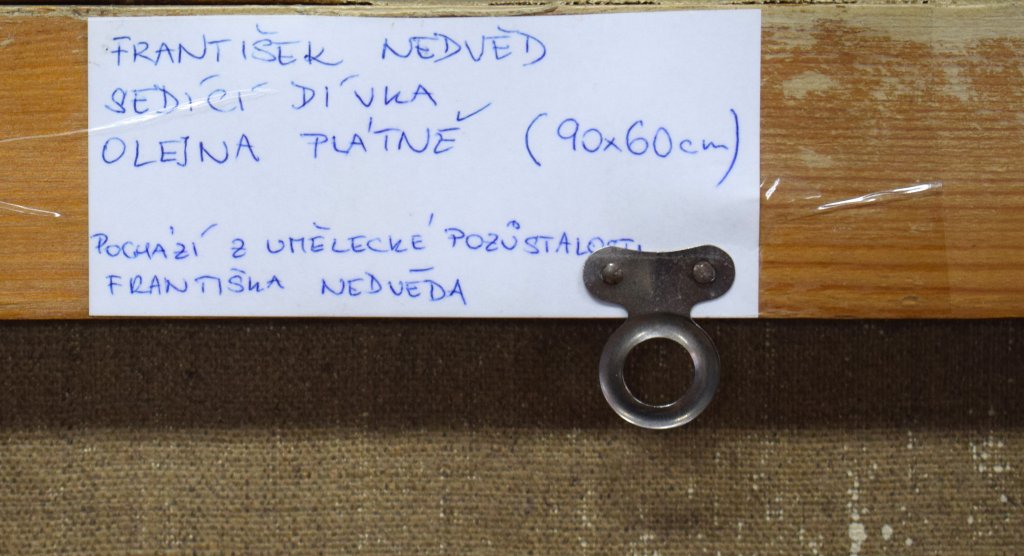 FRANTIŠEK NEDVĚD
SEDÍCÍ DÍVKA
OLEJ NA PLÁTNĚ (90x60cm)
POCHÁZÍ Z UMĚLECKÉ POZŮSTALOSTI
FRANTIŠKA NEDVĚDA